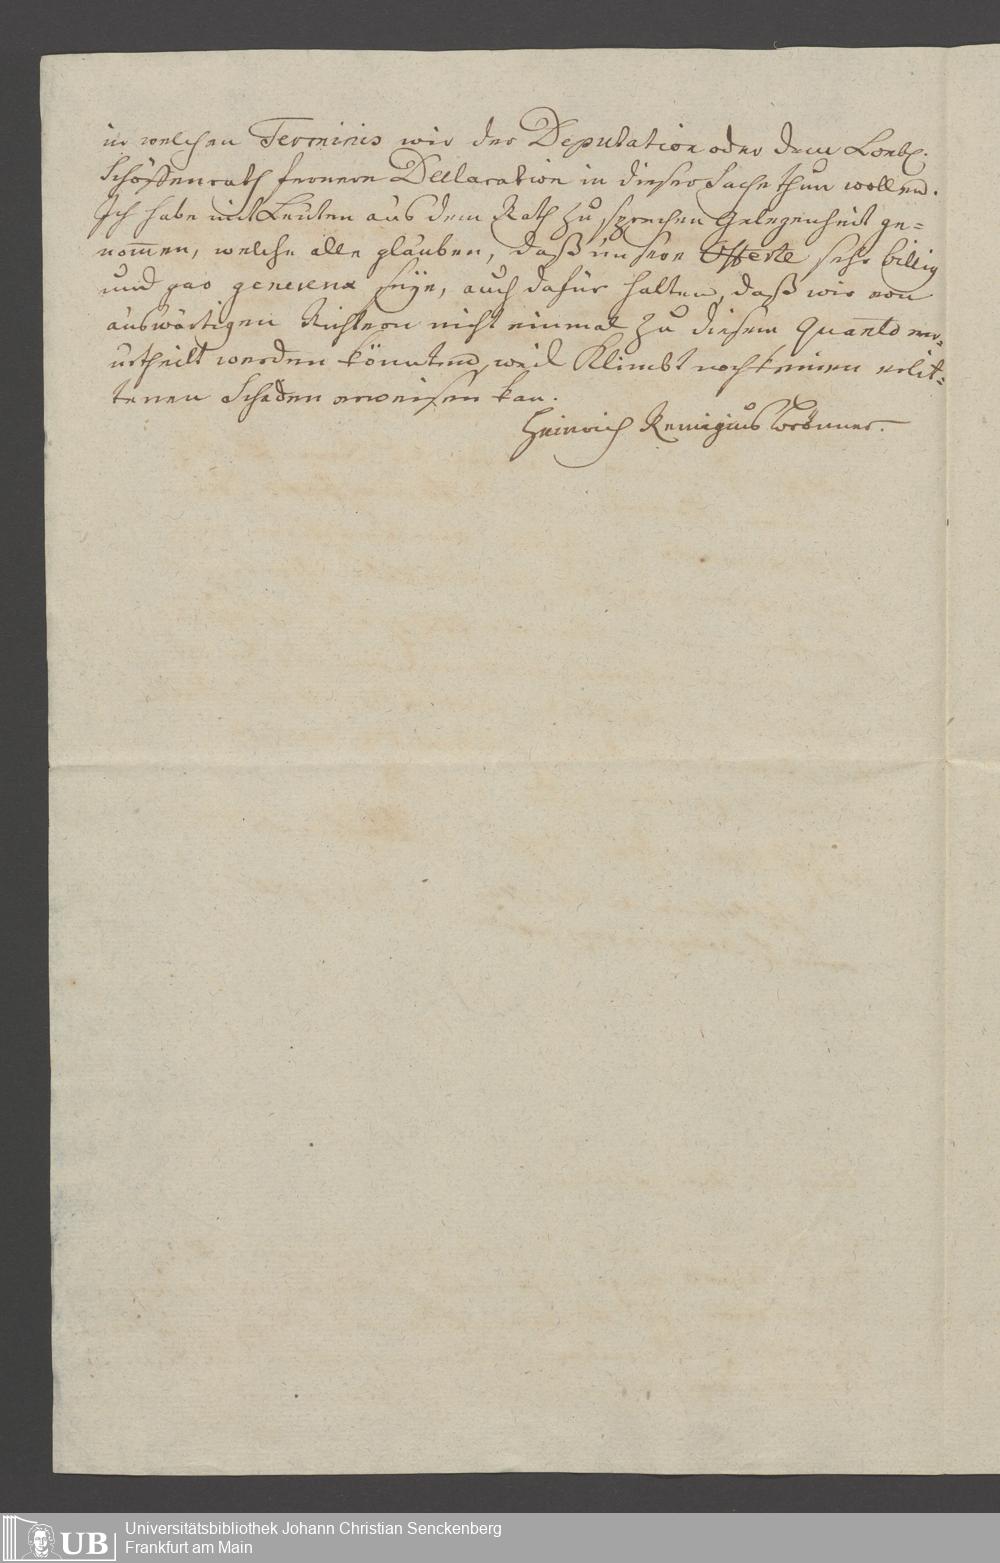 in welchen Terminis wir der Deputation oder dem Löbl.
Schöffenrath fernere Declaration in dieser Sache thun wollen.
Ich habe mit Leuten aus dem Rath zu sprechen Gelegenheit ge=
nom̅en, welche alle glauben, daß unsere Offerte sehr billig
und gar genereux seÿe, auch dafür halten, daß wir von
auswärtigen Richtern nicht einmal zu diesem Quanto ver-
urtheilt werden könnten, weil Klimbt noch keinen erlit=
tenen Schaden erweisen kan.
Heinrich Remigius Brönner.
UB
Universitätsbibliothek Johann Christian Senckenberg
Frankfurt am Main